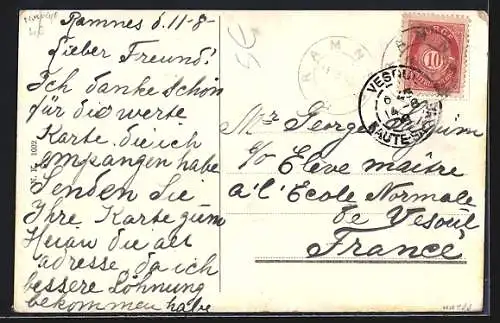 Norwège
Ramnes d. 11-8-
Lieber Freund!
Ich danke schön
für die werte
Karte, die ich
empfangen habe
Senden Sie
Ihre Karte zum
Herau die alt
adresse, da ich
bessere Löhnung
bekommen habe
N. K. 1002
RAMN
NORGE
10
VESOUL
6
14
8
HAUTE-SAÔNE
Mr Georges
c/o Elève maître
a l'Ecole Normale
de Vesoul
France